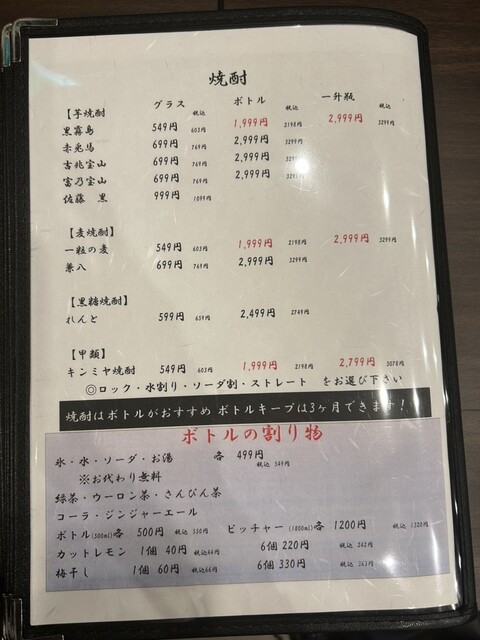 焼酎
グラス 税込 ボトル 税込 一升瓶 税込
【芋焼酎
黒霧島 549円 603円 1,999円 2198円 2,999円 3299円
赤兎馬 699円 769円 2,999円 3299円
吉兆宝山 699円 769円 2,999円 3299円
富乃宝山 699円 769円 2,999円 3299円
佐藤 黒 999円 1099円
【麦焼酎】
一粒の麦 549円 603円 1,999円 2198円 2,999円 3299円
兼八 699円 769円 2,999円 3299円
【黒糖焼酎】
れんと 599円 659円 2,499円 2749円
【甲類】
キンミヤ焼酎 549円 603円 1,999円 2198円 2,799円 3078円
◎ロック・水割り・ソーダ割・ストレート をお選び下さい
焼酎はボトルがおすすめ ボトルキープは3ヶ月できます!
ボトルの割り物
氷・水・ソーダ・お湯 各 499円 税込 549円
※お代わり無料
緑茶・ウーロン茶・さんぴん茶
コーラ・ジンジャーエール
ボトル(500ml)各 500円 税込 550円 ピッチャー(1800ml)各 1200円 税込 1320円
カットレモン 1個 40円 税込44円 6個 220円 税込 242円
梅干し 1個 60円 税込66円 6個 330円 税込 363円